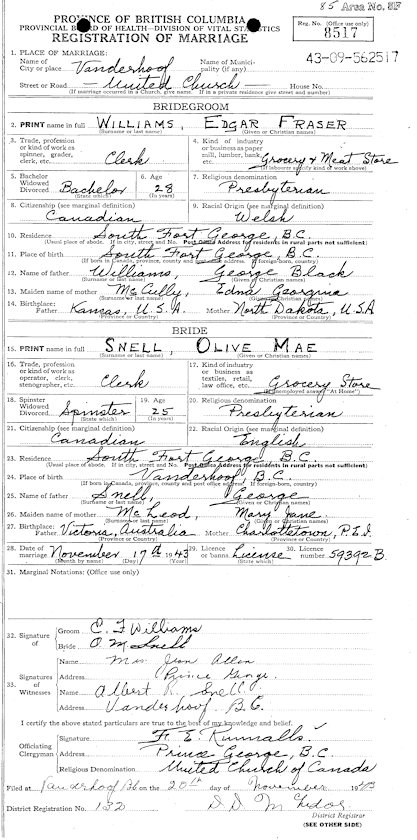 85 Area No.
PROVINCE OF BRITISH COLUMBIA
PROVINCIAL BOARD OF HEALTH—DIVISION OF VITAL STATISTICS
REGISTRATION OF MARRIAGE
Reg. No. (Office use only)
8517
43-09-562517
1. PLACE OF MARRIAGE:
Name of City or place Vanderhoof Name of Municipality (if any)
Street or Road United Church House No.
(If marriage occurred in a Church, give name. If in a private residence give street and number)
BRIDEGROOM
2. PRINT name in full WILLIAMS, EDGAR FRASER
(Surname or last name) (Given or Christian names)
3. Trade, profession or kind of work as spinner, grader, clerk, etc. Clerk
4. Kind of industry or business as paper mill, lumber, bank, etc. Grocery & Meat Store
5. Bachelor Widowed Divorced Bachelor
(State which)
6. Age 28
(In years)
7. Religious denomination Presbyterian
8. Citizenship (see marginal definition) Canadian
9. Racial Origin (see marginal definition) Welsh
10. Residence South Fort George, B.C.
(Usual place of abode. If in city, street and No. Post Office Address for residents in rural parts not sufficient)
11. Place of birth South Fort George, B.C.
12. Name of father Williams, George Black
(Surname or last name) (Given or Christian names)
13. Maiden name of mother McCully, Edna Georgina
(Surname or last name) (Given or Christian names)
14. Birthplace: Father Kansas, U.S.A. Mother North Dakota, U.S.A
(Province or Country) (Province or Country)
BRIDE
15. PRINT name in full SNELL, OLIVE MAE
(Surname or last name) (Given or Christian names)
16. Trade, profession or kind of work as operator, clerk, stenographer, etc. Clerk
17. Kind of industry or business as textiles, retail, law office, etc. Grocery Store
(If unemployed answer "At Home")
18. Spinster Widowed Divorced Spinster
(State which)
19. Age 25
(In years)
20. Religious denomination Presbyterian
21. Citizenship (see marginal definition) Canadian
22. Racial Origin (see marginal definition) English
23. Residence South Fort George B.C.
(Usual place of abode. If in city, street and No. Post Office Address for residents in rural parts not sufficient)
24. Place of birth Vanderhoof B.C.
25. Name of father Snell, George
(Surname or last name) (Given or Christian names)
26. Maiden name of mother McLeod, Mary Jane
(Surname or last name) (Given or Christian names)
27. Birthplace: Father Victoria, Australia Mother Charlottetown, P.E.I.
(Province or Country) (Province or Country)
28. Date of marriage November 17th 1943
(Month by name) (Day) (Year)
29. Licence or banns License
(State which)
30. Licence number 59392B
31. Marginal Notations: (Office use only)
32. Signature of
Groom E. F Williams
Bride O. M Snell
33. Signatures of Witnesses
Name Mrs Jean Allen
Address Prince George
Name Albert R. Snell
Address Vanderhoof B.C.
I certify the above stated particulars are true to the best of my knowledge and belief.
Officiating Clergyman
Signature F. E. Runnalls
Address Prince George, B.C.
Religious Denomination United Church of Canada
Filed at Vanderhoof BC on the 20th day of November 1943
District Registration No. 132
District Registrar
(SEE OTHER SIDE)